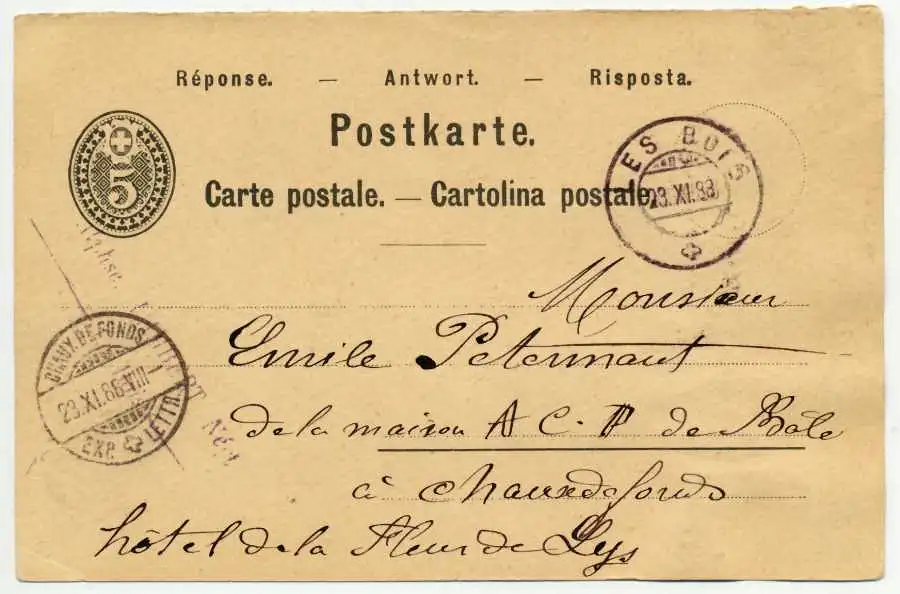 Réponse. — Antwort. — Risposta.
Postkarte.
Carte postale. — Cartolina postale.
5
LES BOIS
23.XI.88
Monsieur
Emile Petermant
de la maison A C. P de Bâle
à Chauxdefonds
hôtel de la Fleur de Lys
CHAUX.DE.FONDS
23.XI.88-VIII
EXP. LETTR.